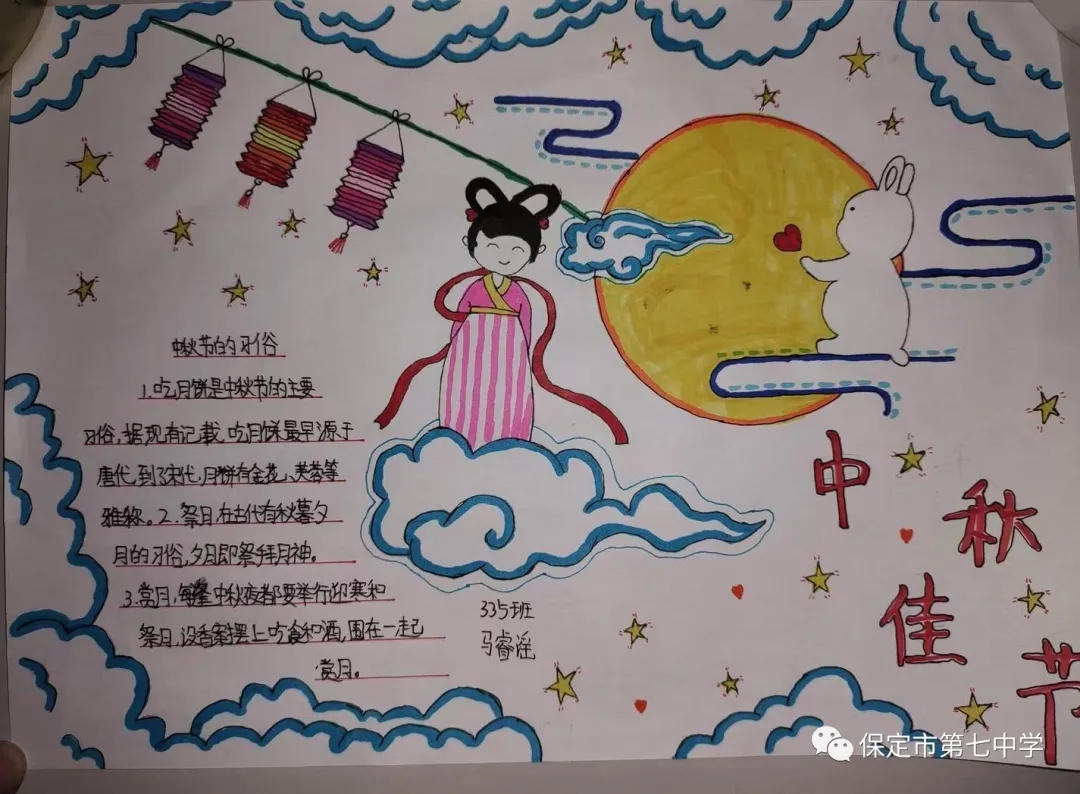 中秋节的习俗
1.吃月饼是中秋节的主要
习俗,据现有记载,吃月饼最早源于
唐代,到了宋代,月饼有金花、芙蓉等
雅称。2.祭月,在古代有秋暮夕
月的习俗,夕月即祭拜月神。
3.赏月,每逢中秋夜都要举行迎寒和
祭月,设香案摆上吃食和酒,围在一起
赏月。
335班
马睿谣
中
秋
佳
节
保定市第七中学